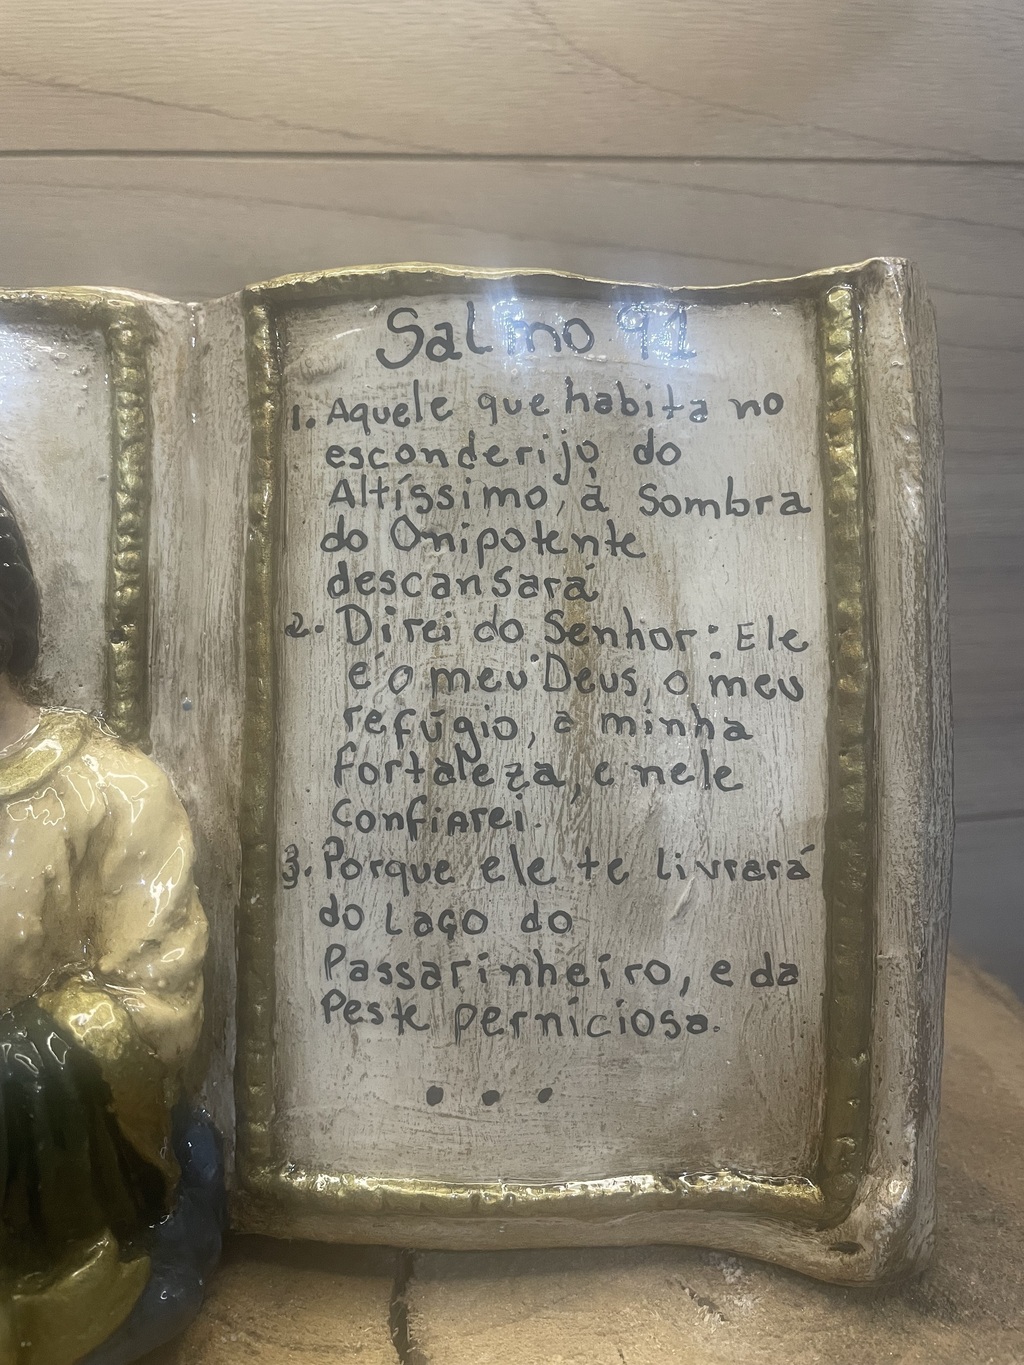 Salmo 91
1. Aquele que habita no
esconderijo do
Altíssimo, à Sombra
do Onipotente
descansará
2. Direi do Senhor: Ele
é o meu Deus, o meu
refúgio, a minha
fortaleza, e nele
confiarei.
3. Porque ele te livrará
do Laço do
Passarinheiro, e da
Peste perniciosa.
...